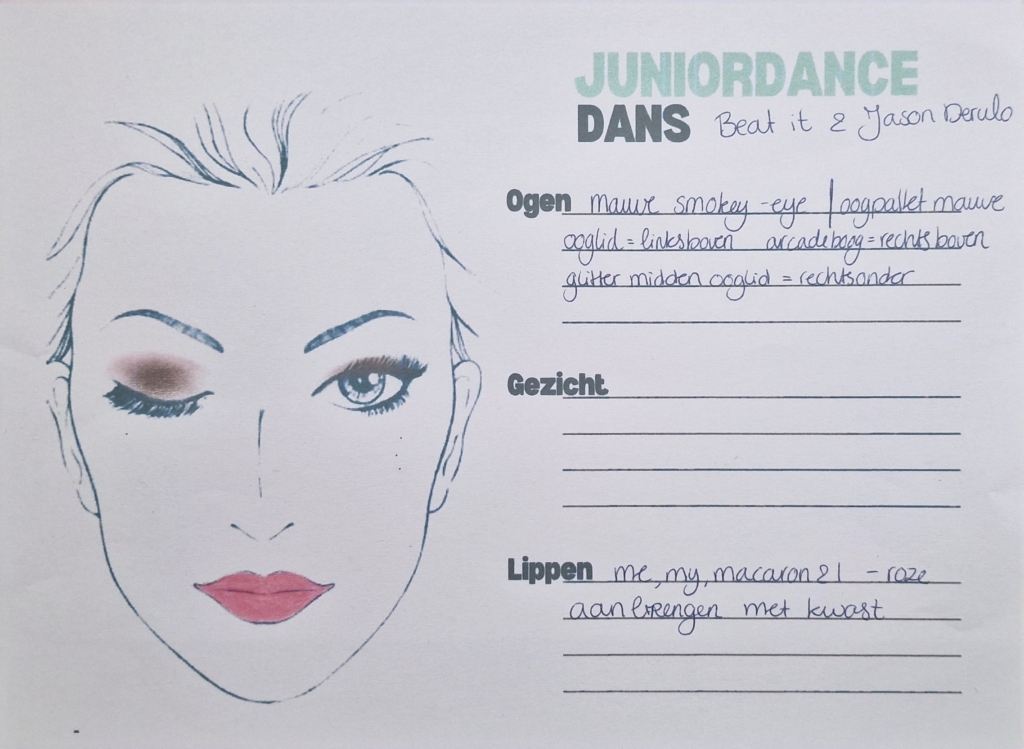 JUNIORDANCE
DANS Beat it & Jason Derulo
Ogen mauve smokey-eye | oogpallet mauve
ooglid = linksboven arcadeboog = rechtsboven
glitter midden ooglid = rechtsonder
Gezicht
Lippen me, my, macaron & I - roze
aanbrengen met kwast